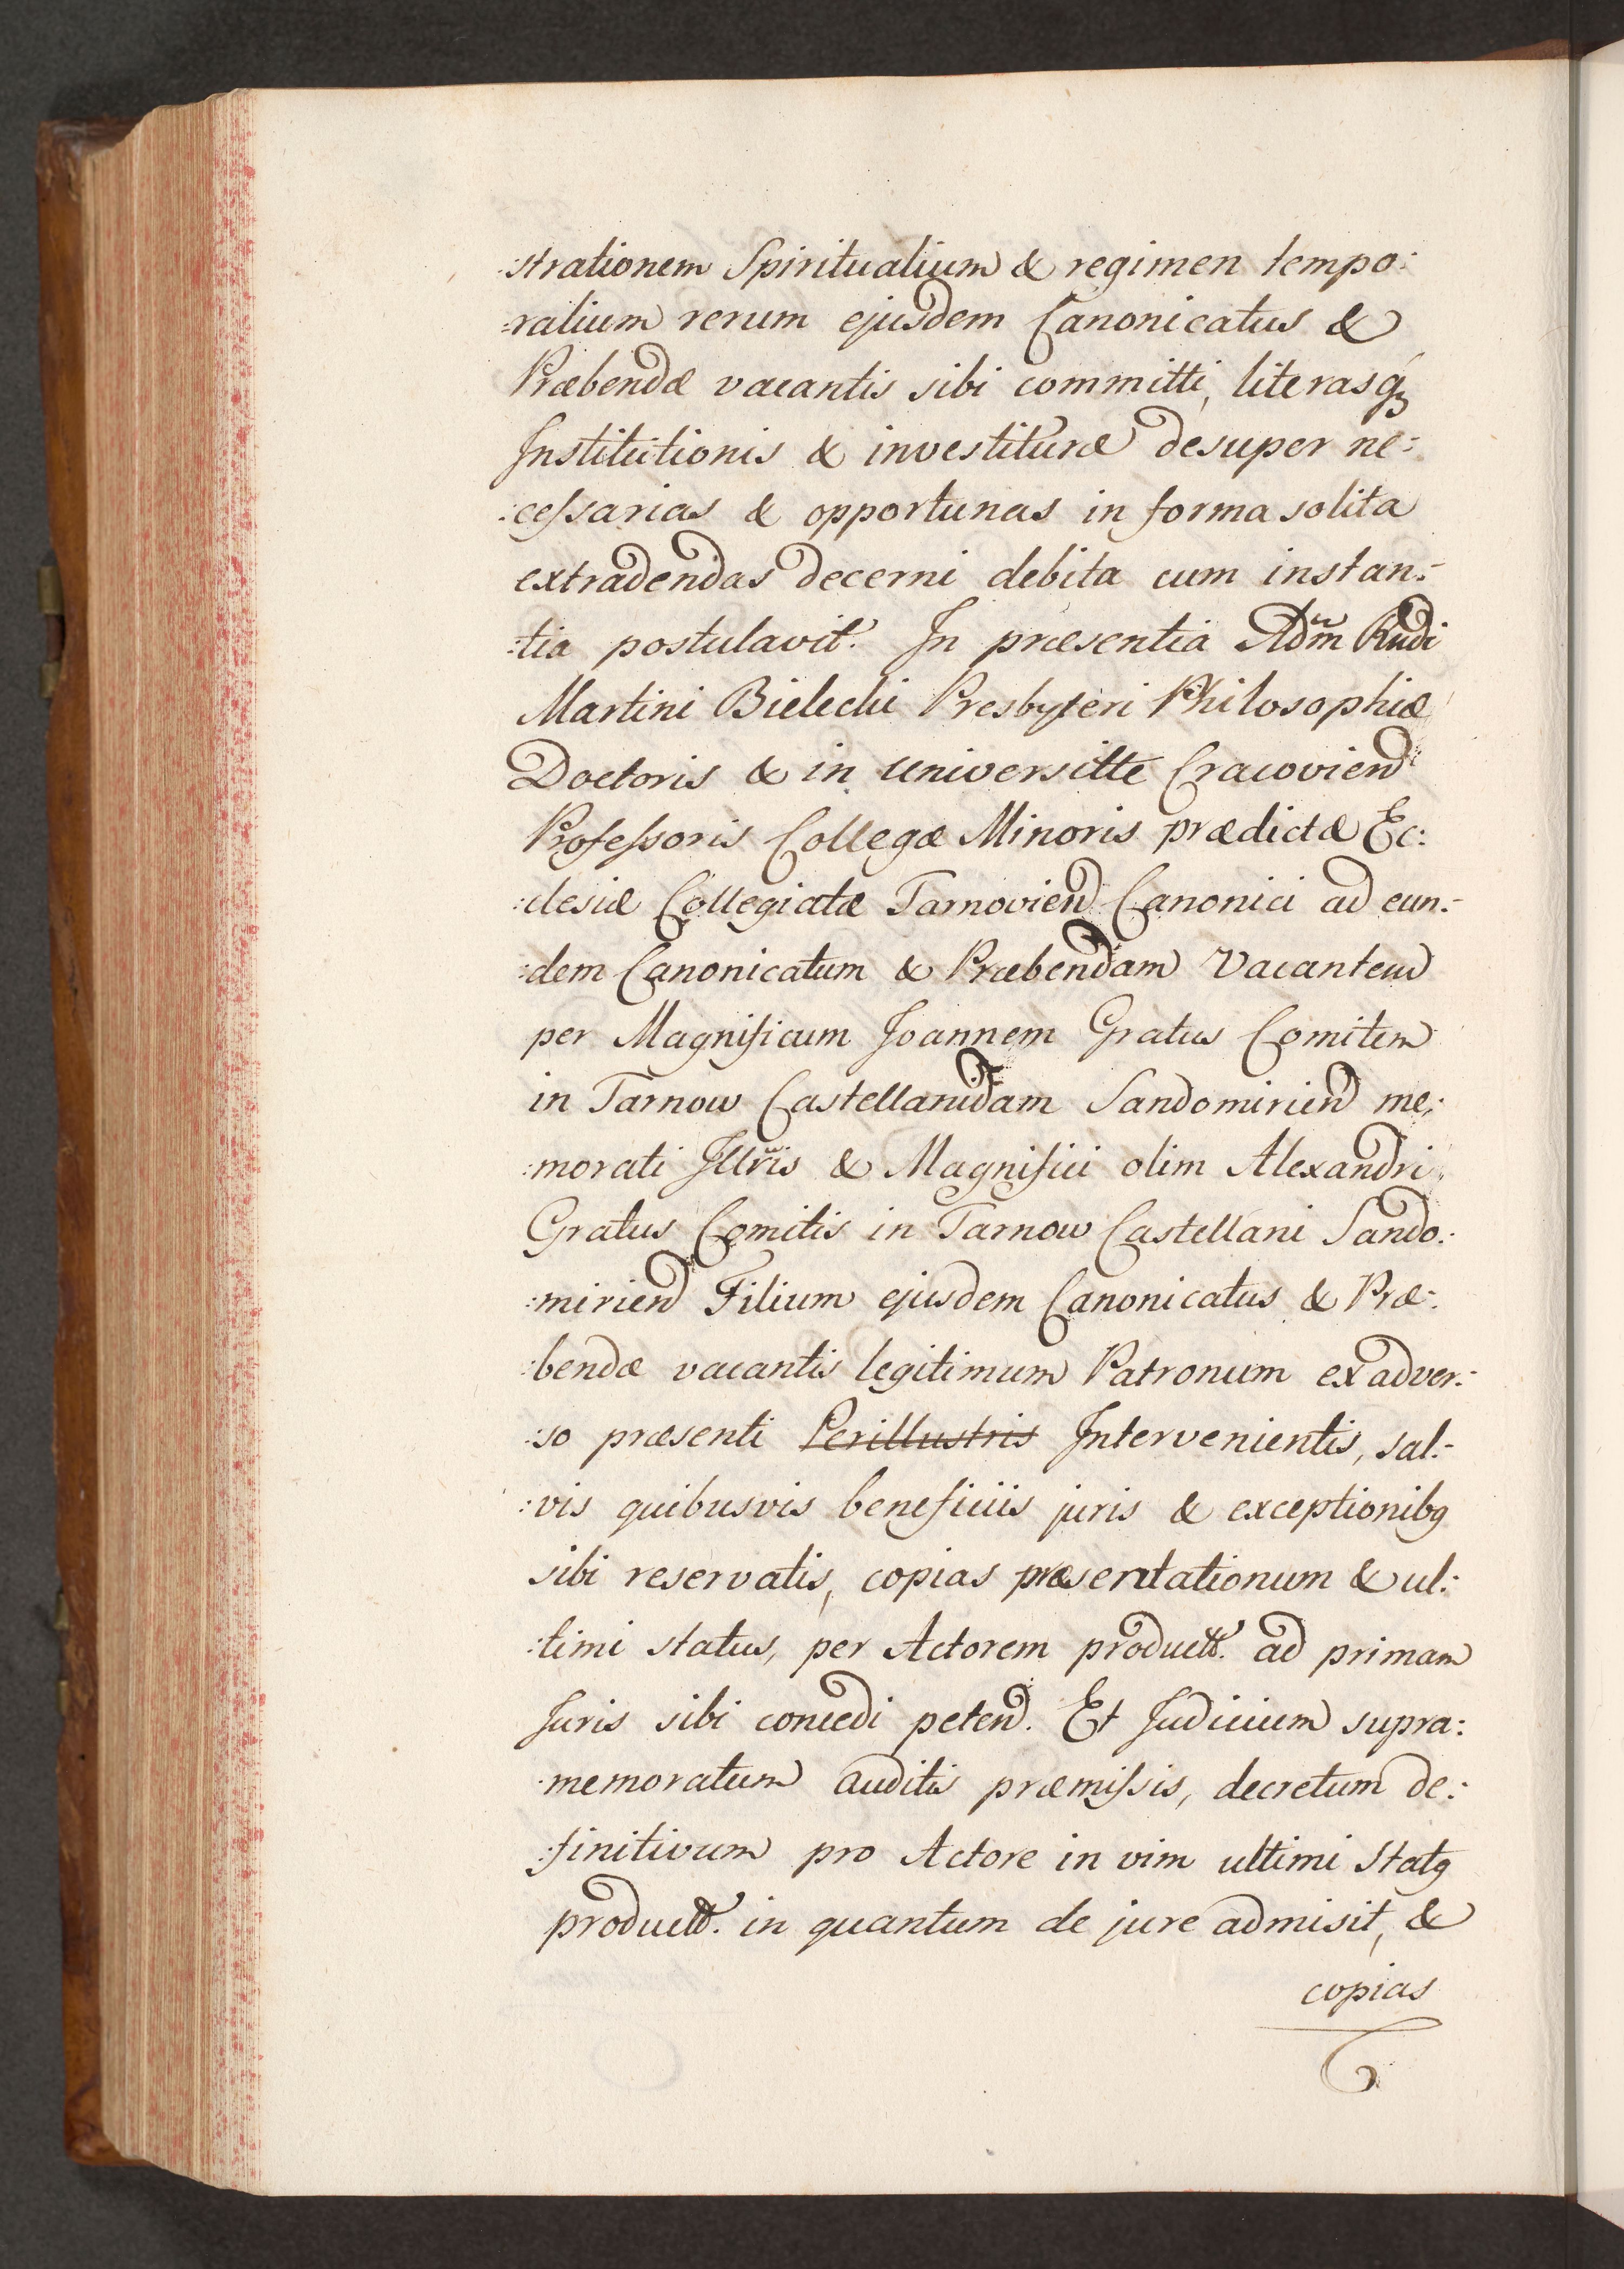 :strationem Spiritualium & regimen tempo:
:ralium rerum ejusdem Canonicatus &
Præbendæ vacantis sibi committi, literasq́ꝫ
Institutionis & investituræ desuper ne:
:ceſsarias & opportunas in forma solita
extradendas decerni debita cum instan:
:tia postulavit. In præsentia Adm̃ Rndi
Martini Bielecki Presbyteri Philosophiæ
Doctoris & in Universitte Cracovien
Profeſsoris Collegæ Minoris prædictæ Ec:
:clesiæ Collegiatæ Tarnovien Canonici ad eun:
:dem Canonicatum & Præbendam Vacantem
per Magnificum Joannem Gratus Comitem
in Tarnow Castellanidam Sandomirien me:
:morati Illr̃is & Magnifici olim Alexandri
Gratus Comitis in Tarnow Castellani Sando:
:mirien Filium ejusdem Canonicatus & Præ:
:bendæ vacantis legitimum Patronum ex adver:
:so præsenti Perillustris Intervenientis, sal:
:vis quibusvis beneficiis juris & exceptionibꝰ
sibi reservatis, copias præsentationum & ul:
:timi status, per Actorem productt. ad primam
Juris sibi concedi peten. Et Judicium supra:
:memoratum auditis præmiſsis, decretum de:
:finitivum pro Actore in vim ultimi Statꝰ
productt. in quantum de jure admisit, &
copias